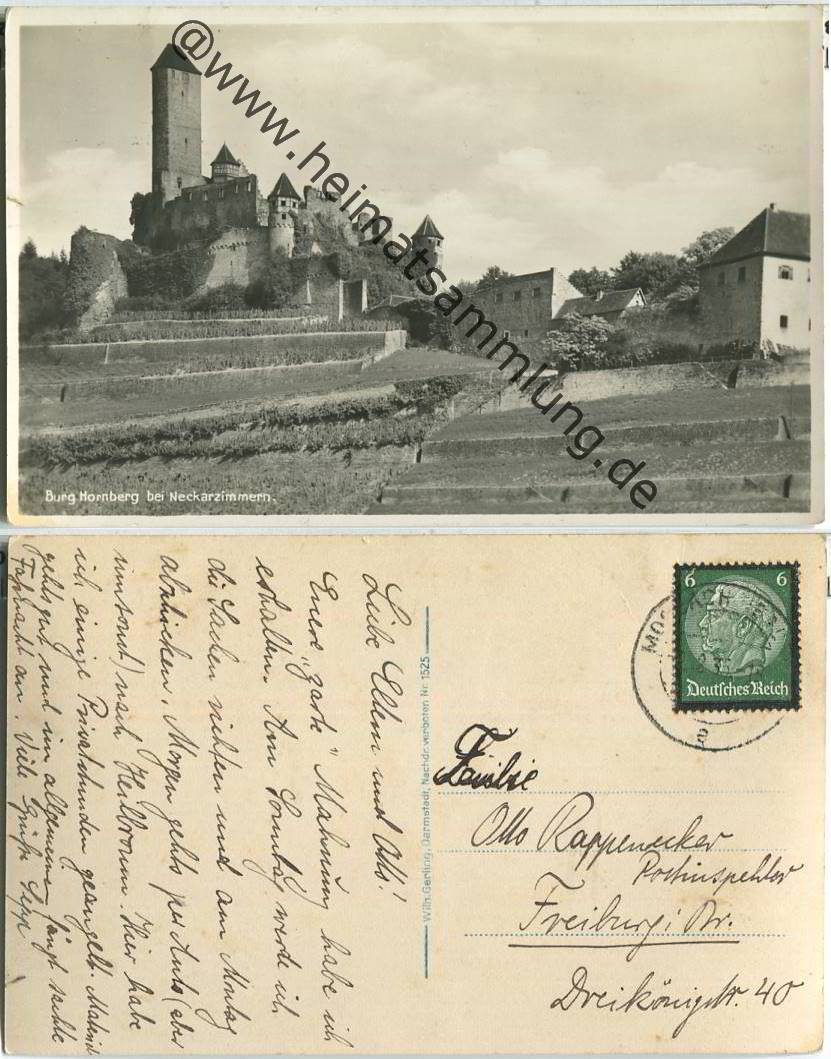 @www.heimatsammlung.de
Burg Hornberg bei Neckarzimmern.
6 6
Deutsches Reich
Familie
Otto Rappenecker
Postinspektor
Freiburg i. Br.
Dreikönigstr. 40
Wilh. Gerling, Darmstadt, Nachdr. verboten Nr. 1525
Liebe Eltern und Otto!
Euere "zarte" Mahnung habe ich
erhalten. Am Sonntag werde ich
die Sachen richten und am Montag
abschicken. Morgen gehts per Auto (aber
umsonst) nach Heilbronn. Hier habe
ich einige Privatstunden geangelt. Materiell
gehts gut und im allgemeinen fängt sachte
Fasnacht an. Viele Grüße Sepp